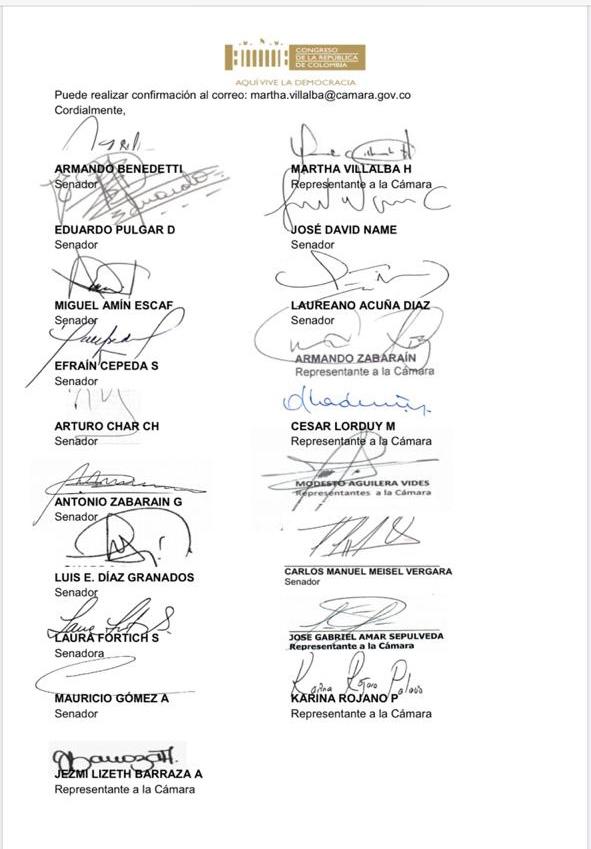 CONGRESO
DE LA REPÚBLICA
DE COLOMBIA
AQUÍ VIVE LA DEMOCRACIA
Puede realizar confirmación al correo: martha.villalba@camara.gov.co
Cordialmente,
ARMANDO BENEDETTI
Senador
MARTHA VILLALBA H
Representante a la Cámara
EDUARDO PULGAR D
Senador
JOSÉ DAVID NAME
Senador
MIGUEL AMÍN ESCAF
Senador
LAUREANO ACUÑA DIAZ
Senador
EFRAÍN CEPEDA S
Senador
ARMANDO ZABARAÍN
Representante a la Cámara
ARTURO CHAR CH
Senador
CESAR LORDUY M
Representante a la Cámara
ANTONIO ZABARAIN G
Senador
MODESTO AGUILERA VIDES
Representantes a la Cámara
LUIS E. DÍAZ GRANADOS
Senador
CARLOS MANUEL MEISEL VERGARA
Senador
LAURA FORTICH S
Senadora
JOSE GABRIEL AMAR SEPULVEDA
Representante a la Cámara
MAURICIO GÓMEZ A
Senador
Karina Rojano Palacio
KARINA ROJANO P
Representante a la Cámara
JEZMI LIZETH BARRAZA A
Representante a la Cámara